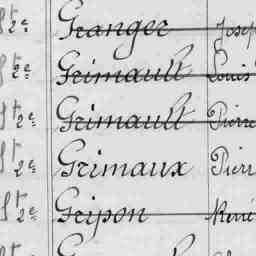 St 2e Granger Josep
St 2e Grimault Louis
St 2e Grimault Pierre
St 2e Grimaux Pierr
St 2e Gripon René